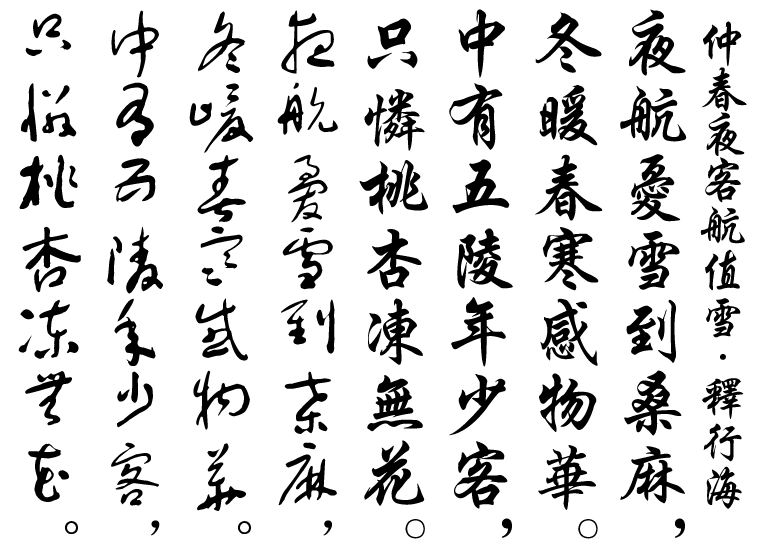 仲春夜客航值雪·釋行海
夜航憂雪到桑麻，
冬暖春寒感物華。
中有五陵年少客，
只憐桃杏凍無花。
夜航憂雪到桑麻，
冬暖春寒感物華。
中有五陵年少客，
只憐桃杏凍無花。